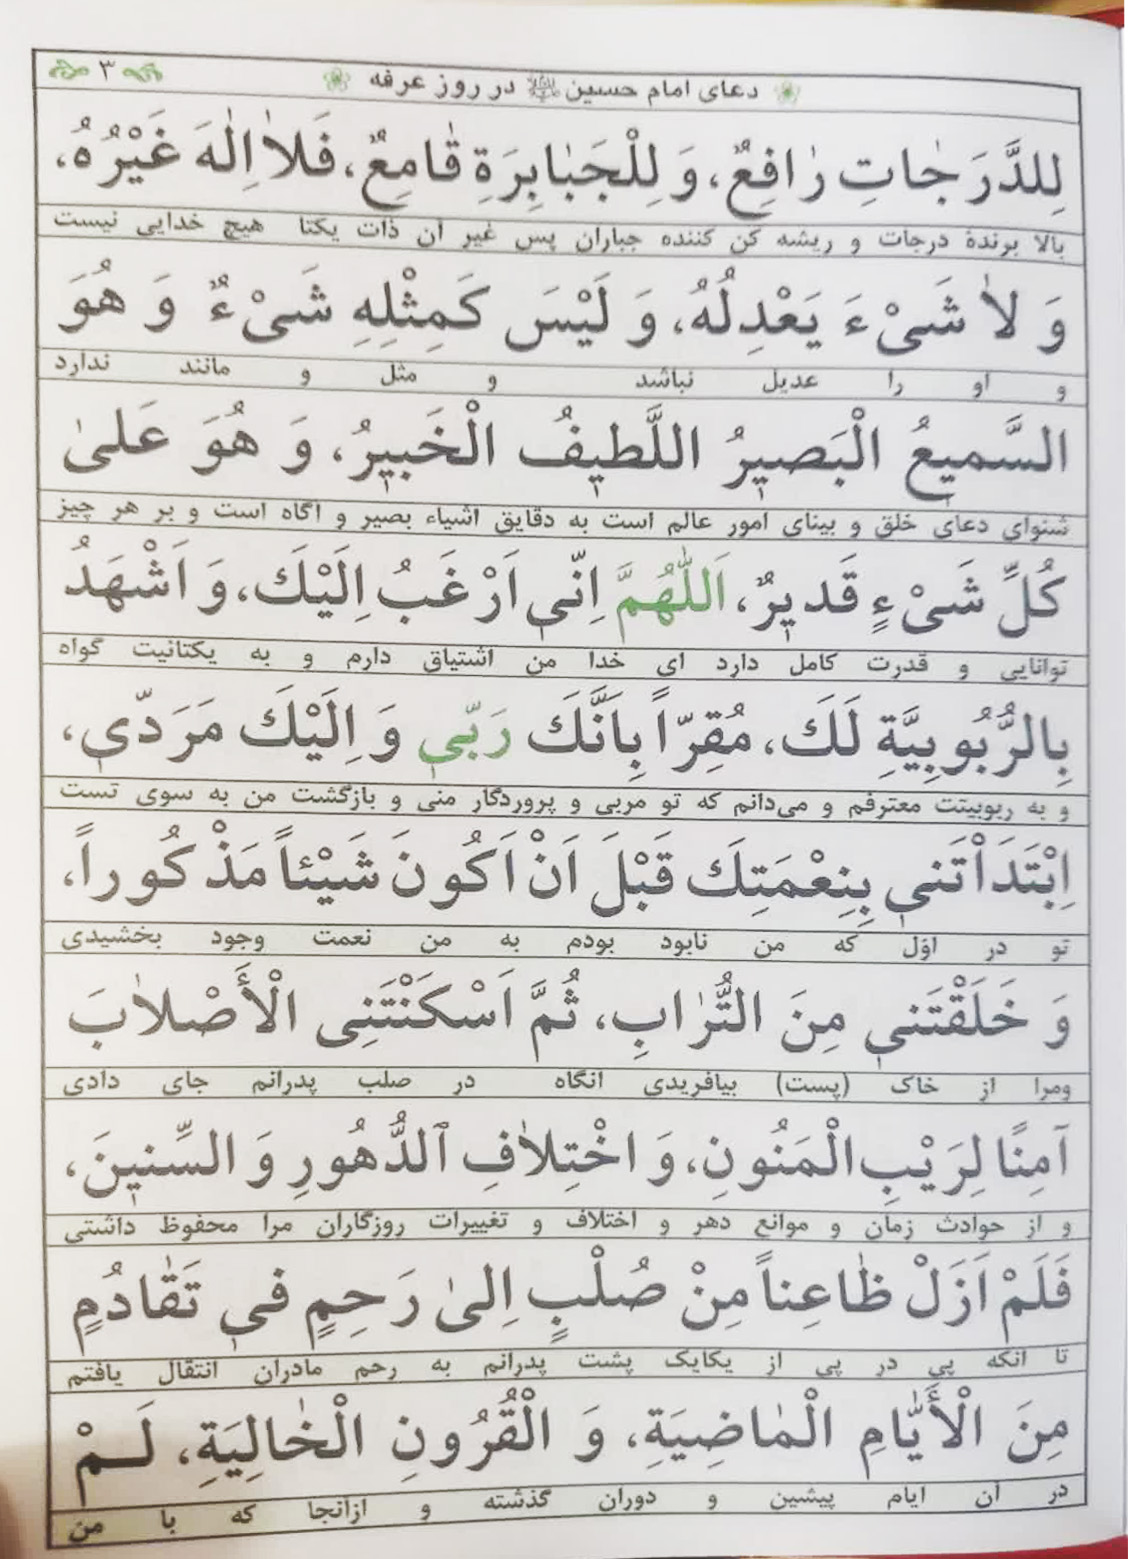 دعای امام حسین علیه السلام در روز عرفه ۳
لِلدَّرَجٰاتِ رٰافِعٌ، وَ لِلْجَبٰابِرَةِ قٰامِعٌ، فَلاٰ اِلٰهَ غَيْرُهُ،
بالا برندۀ درجات و ریشه کن کننده جباران پس غیر آن ذات یکتا هیچ خدایی نیست
وَ لاٰ شَىْءَ يَعْدِلُهُ، وَ لَيْسَ كَمِثْلِهِ شَىْءٌ وَ هُوَ
و او را عدیل نباشد و مثل و مانند ندارد
السَّميعُ الْبَصيرُ اللَّطيفُ الْخَبيرُ، وَ هُوَ عَلىٰ
شنوای دعای خلق و بینای امور عالم است به دقایق اشیاء بصیر و آگاه است و بر هر چیز
كُلِّ شَىْءٍ قَديرٌ، اَللّٰهُمَّ اِنّى اَرْغَبُ اِلَيْكَ، وَ اَشْهَدُ
توانایی و قدرت کامل دارد ای خدا من اشتیاق دارم و به یکتانیت گواه
بِالرُّبُوبِيَّةِ لَكَ، مُقِرّاً بِاَنَّكَ رَبّى وَ اِلَيْكَ مَرَدّى،
و به ربوبیتت معترفم و می‌دانم که تو مربی و پروردگار منی و بازگشت من به سوی تست
اِبْتَدَاْتَنى بِنِعْمَتِكَ قَبْلَ اَنْ اَكُونَ شَيْئاً مَذْكُوراً،
تو در اوّل که من نابود بودم به من نعمت وجود بخشیدی
وَ خَلَقْتَنى مِنَ التُّرٰابِ، ثُمَّ اَسْكَنْتَنِى الْأَصْلاٰبَ
ومرا از خاک (پست) بیافریدی آنگاه در صلب پدرانم جای دادی
آمِنًا لِرَيْبِ الْمَنُونِ، وَ اخْتِلاٰفِ ٱلدُّهُورِ وَ السِّنينَ،
و از حوادث زمان و موانع دهر و اختلاف و تغییرات روزگاران مرا محفوظ داشتی
فَلَمْ اَزَلْ ظٰاعِناً مِنْ صُلْبٍ اِلىٰ رَحِمٍ فى تَقٰادُمٍ
تا آنکه پی در پی از یکایک پشت پدرانم به رحم مادران انتقال یافتم
مِنَ الْأَيّٰامِ الْمٰاضِيَةِ، وَ الْقُرُونِ الْخٰالِيَةِ، لَمْ
در آن ایام پیشین و دوران گذشته و ازآنجا که با من